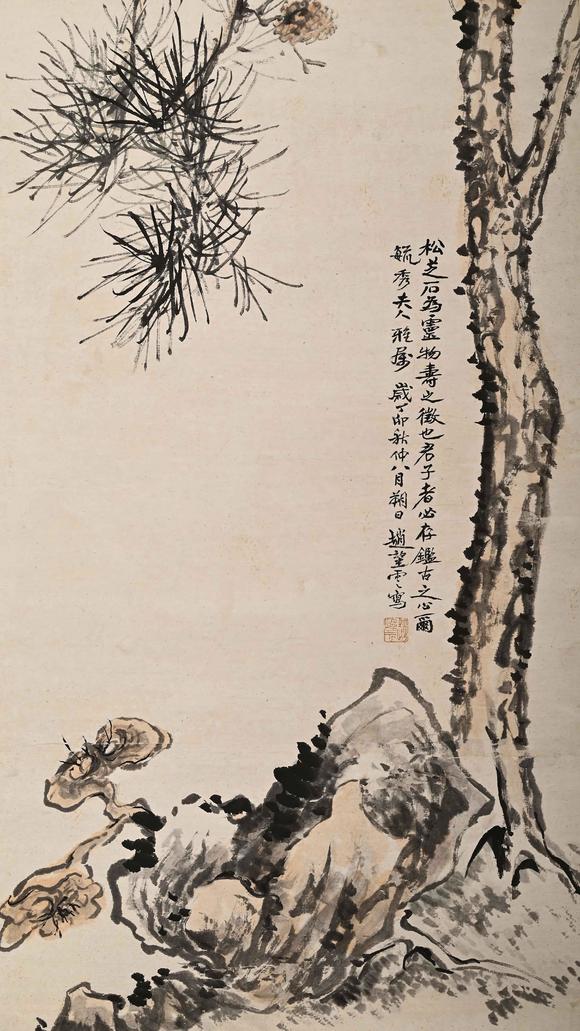 松芝石為靈物壽之徵也君子者必存鑑古之心爾
毓秀夫人雅屬 歲丁卯秋仲八月朔日 趙望雲寫